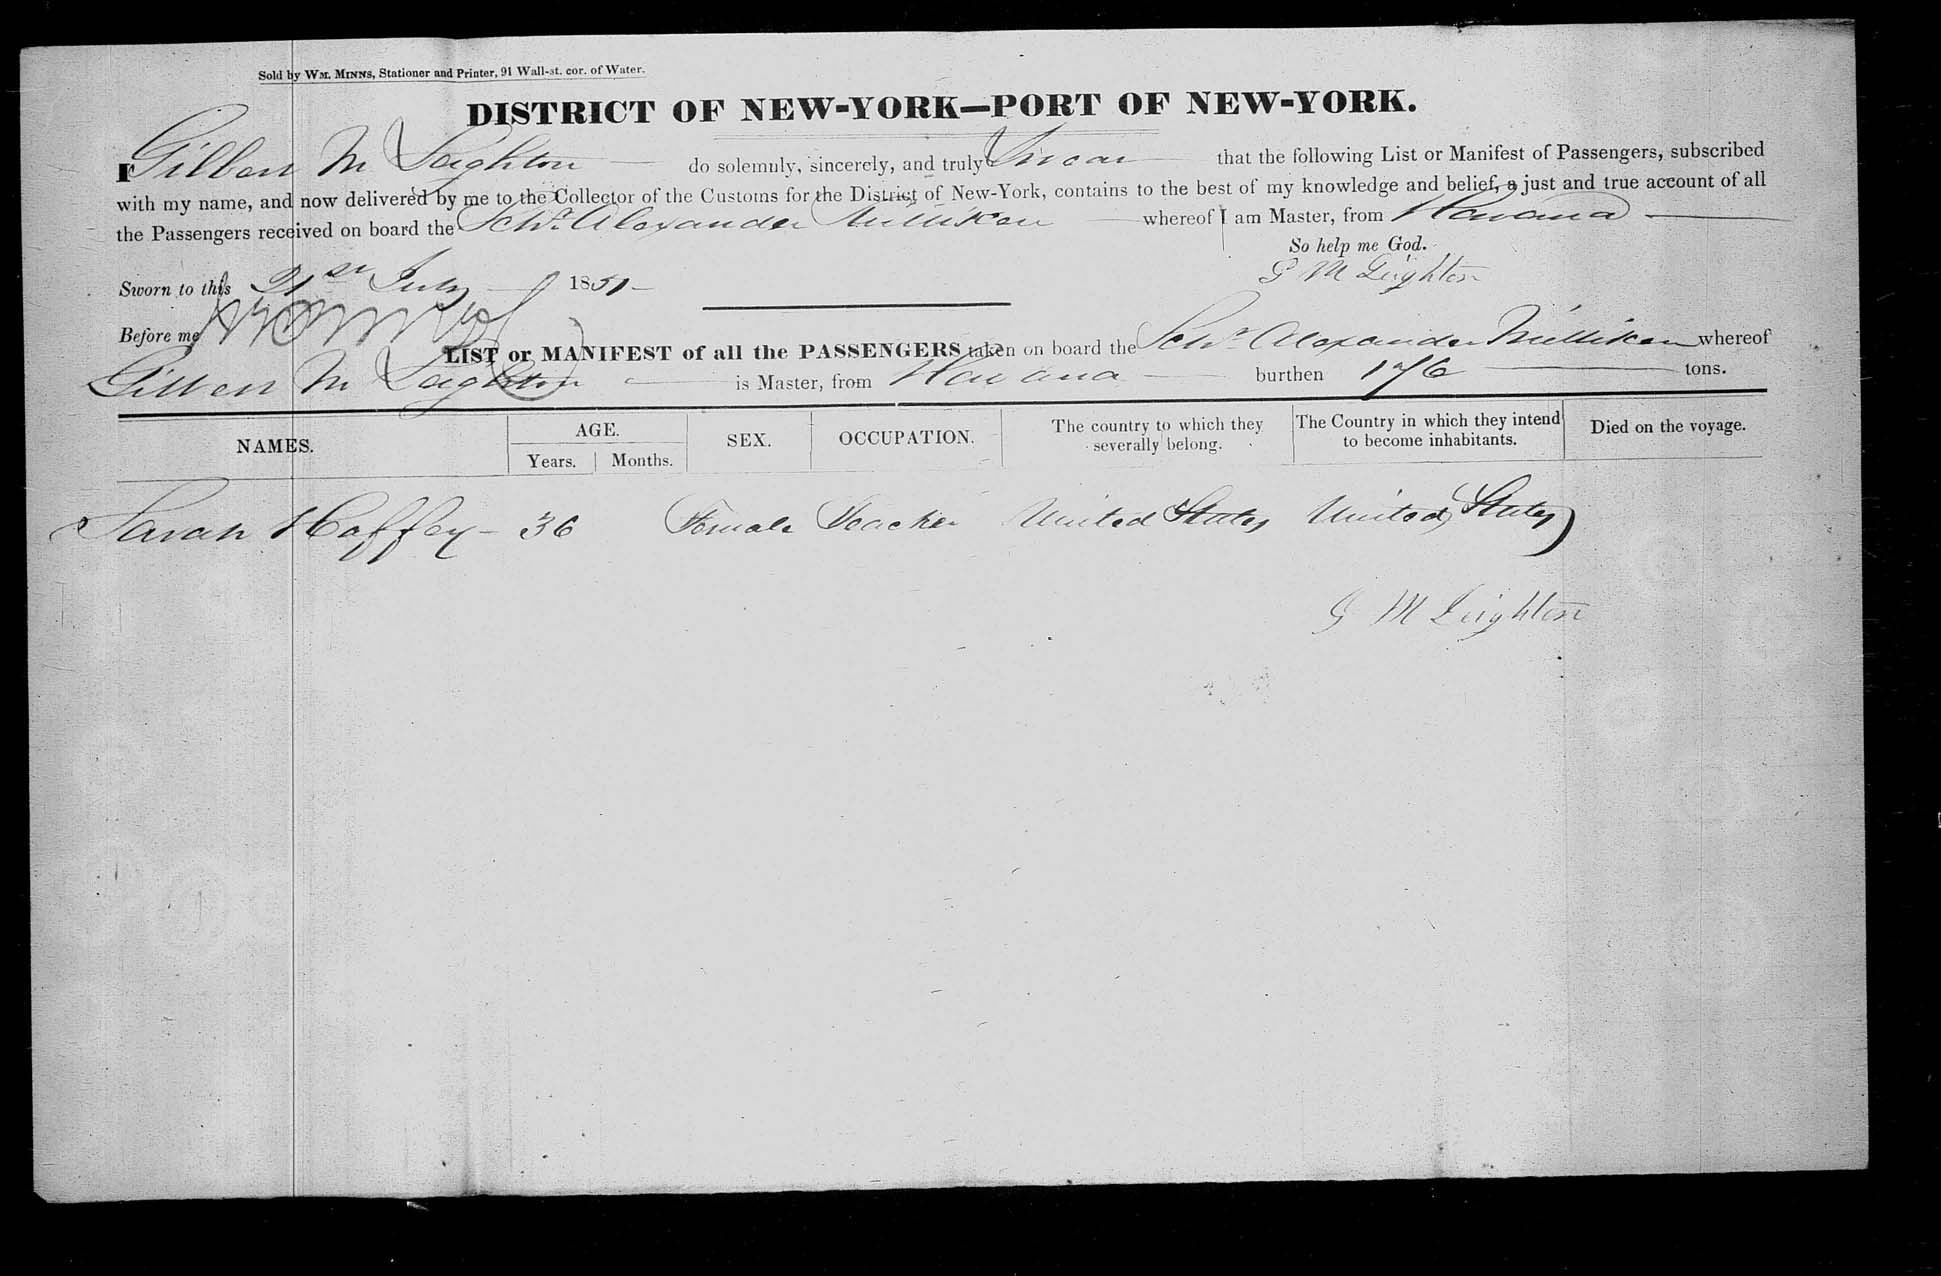 Sold by WM. MINNS, Stationer and Printer, 91 Wall-st. cor. of Water.
DISTRICT OF NEW-YORK—PORT OF NEW-YORK.
I Gilbert M Leighton — do solemnly, sincerely, and truly Swear that the following List or Manifest of Passengers, subscribed
with my name, and now delivered by me to the Collector of the Customs for the District of New-York, contains to the best of my knowledge and belief, a just and true account of all
the Passengers received on board the Schr. Alexander Milliken — whereof I am Master, from Havana —
So help me God.
Sworn to this 21st July — 1851 —
G M Leighton
Before me
LIST or MANIFEST of all the PASSENGERS taken on board the Schr. Alexander Milliken whereof
Gilbert M Leighton — is Master, from Havana — burthen 176 — tons.
NAMES. AGE. Years. Months. SEX. OCCUPATION. The country to which they severally belong. The Country in which they intend to become inhabitants. Died on the voyage.
Sarah Haffey - 36 Female Teacher United States United States
G M Leighton